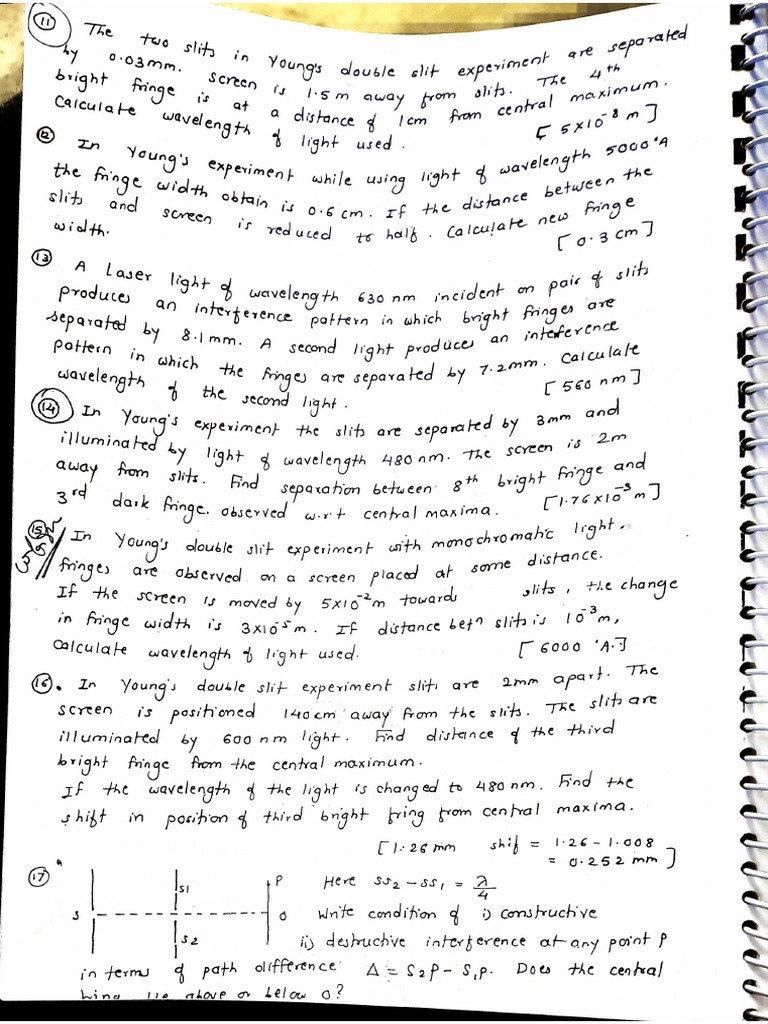 (11) The two slits in Young's double slit experiment are separated
by 0.03mm. screen is 1.5m away from slits. The 4th
bright fringe is at a distance of 1cm from central maximum.
Calculate wavelength of light used. [5×10⁻⁸ m]
(12) In Young's experiment while using light of wavelength 5000°A
the fringe width obtain is 0.6 cm. If the distance between the
slits and screen is reduced to half. Calculate new fringe
width. [0.3 cm]
(13) A Laser light of wavelength 630 nm incident on pair of slits
produces an interference pattern in which bright fringes are
separated by 8.1mm. A second light produces an interference
pattern in which the fringes are separated by 7.2mm. Calculate
wavelength of the second light. [560 nm]
(14) In Young's experiment the slits are separated by 3mm and
illuminated by light of wavelength 480 nm. The screen is 2m
away from slits. Find separation between 8th bright fringe and
3rd dark fringe. observed w.r.t central maxima. [1.76×10⁻³ m]
(15) In Young's double slit experiment with monochromatic light.
fringes are observed on a screen placed at some distance.
If the screen is moved by 5×10⁻²m towards slits, the change
in fringe width is 3×10⁻⁵m. If distance betn slits is 10⁻³m,
Calculate wavelength of light used. [6000 °A.]
(16). In Young's double slit experiment slits are 2mm apart. The
screen is positioned 140cm away from the slits. The slits are
illuminated by 600 nm light. Find distance of the third
bright fringe from the central maximum.
If the wavelength of the light is changed to 480 nm. Find the
shift in position of third bright fring from central maxima.
[1.26 mm shif = 1.26 - 1.008
= 0.252 mm]
(17) S S1 S2 P O Here SS₂ - SS₁ = λ/4
Write condition of i) constructive
ii) destructive interference at any point P
in terms of path difference Δ = S₂P - S₁P. Does the central
above or below O?